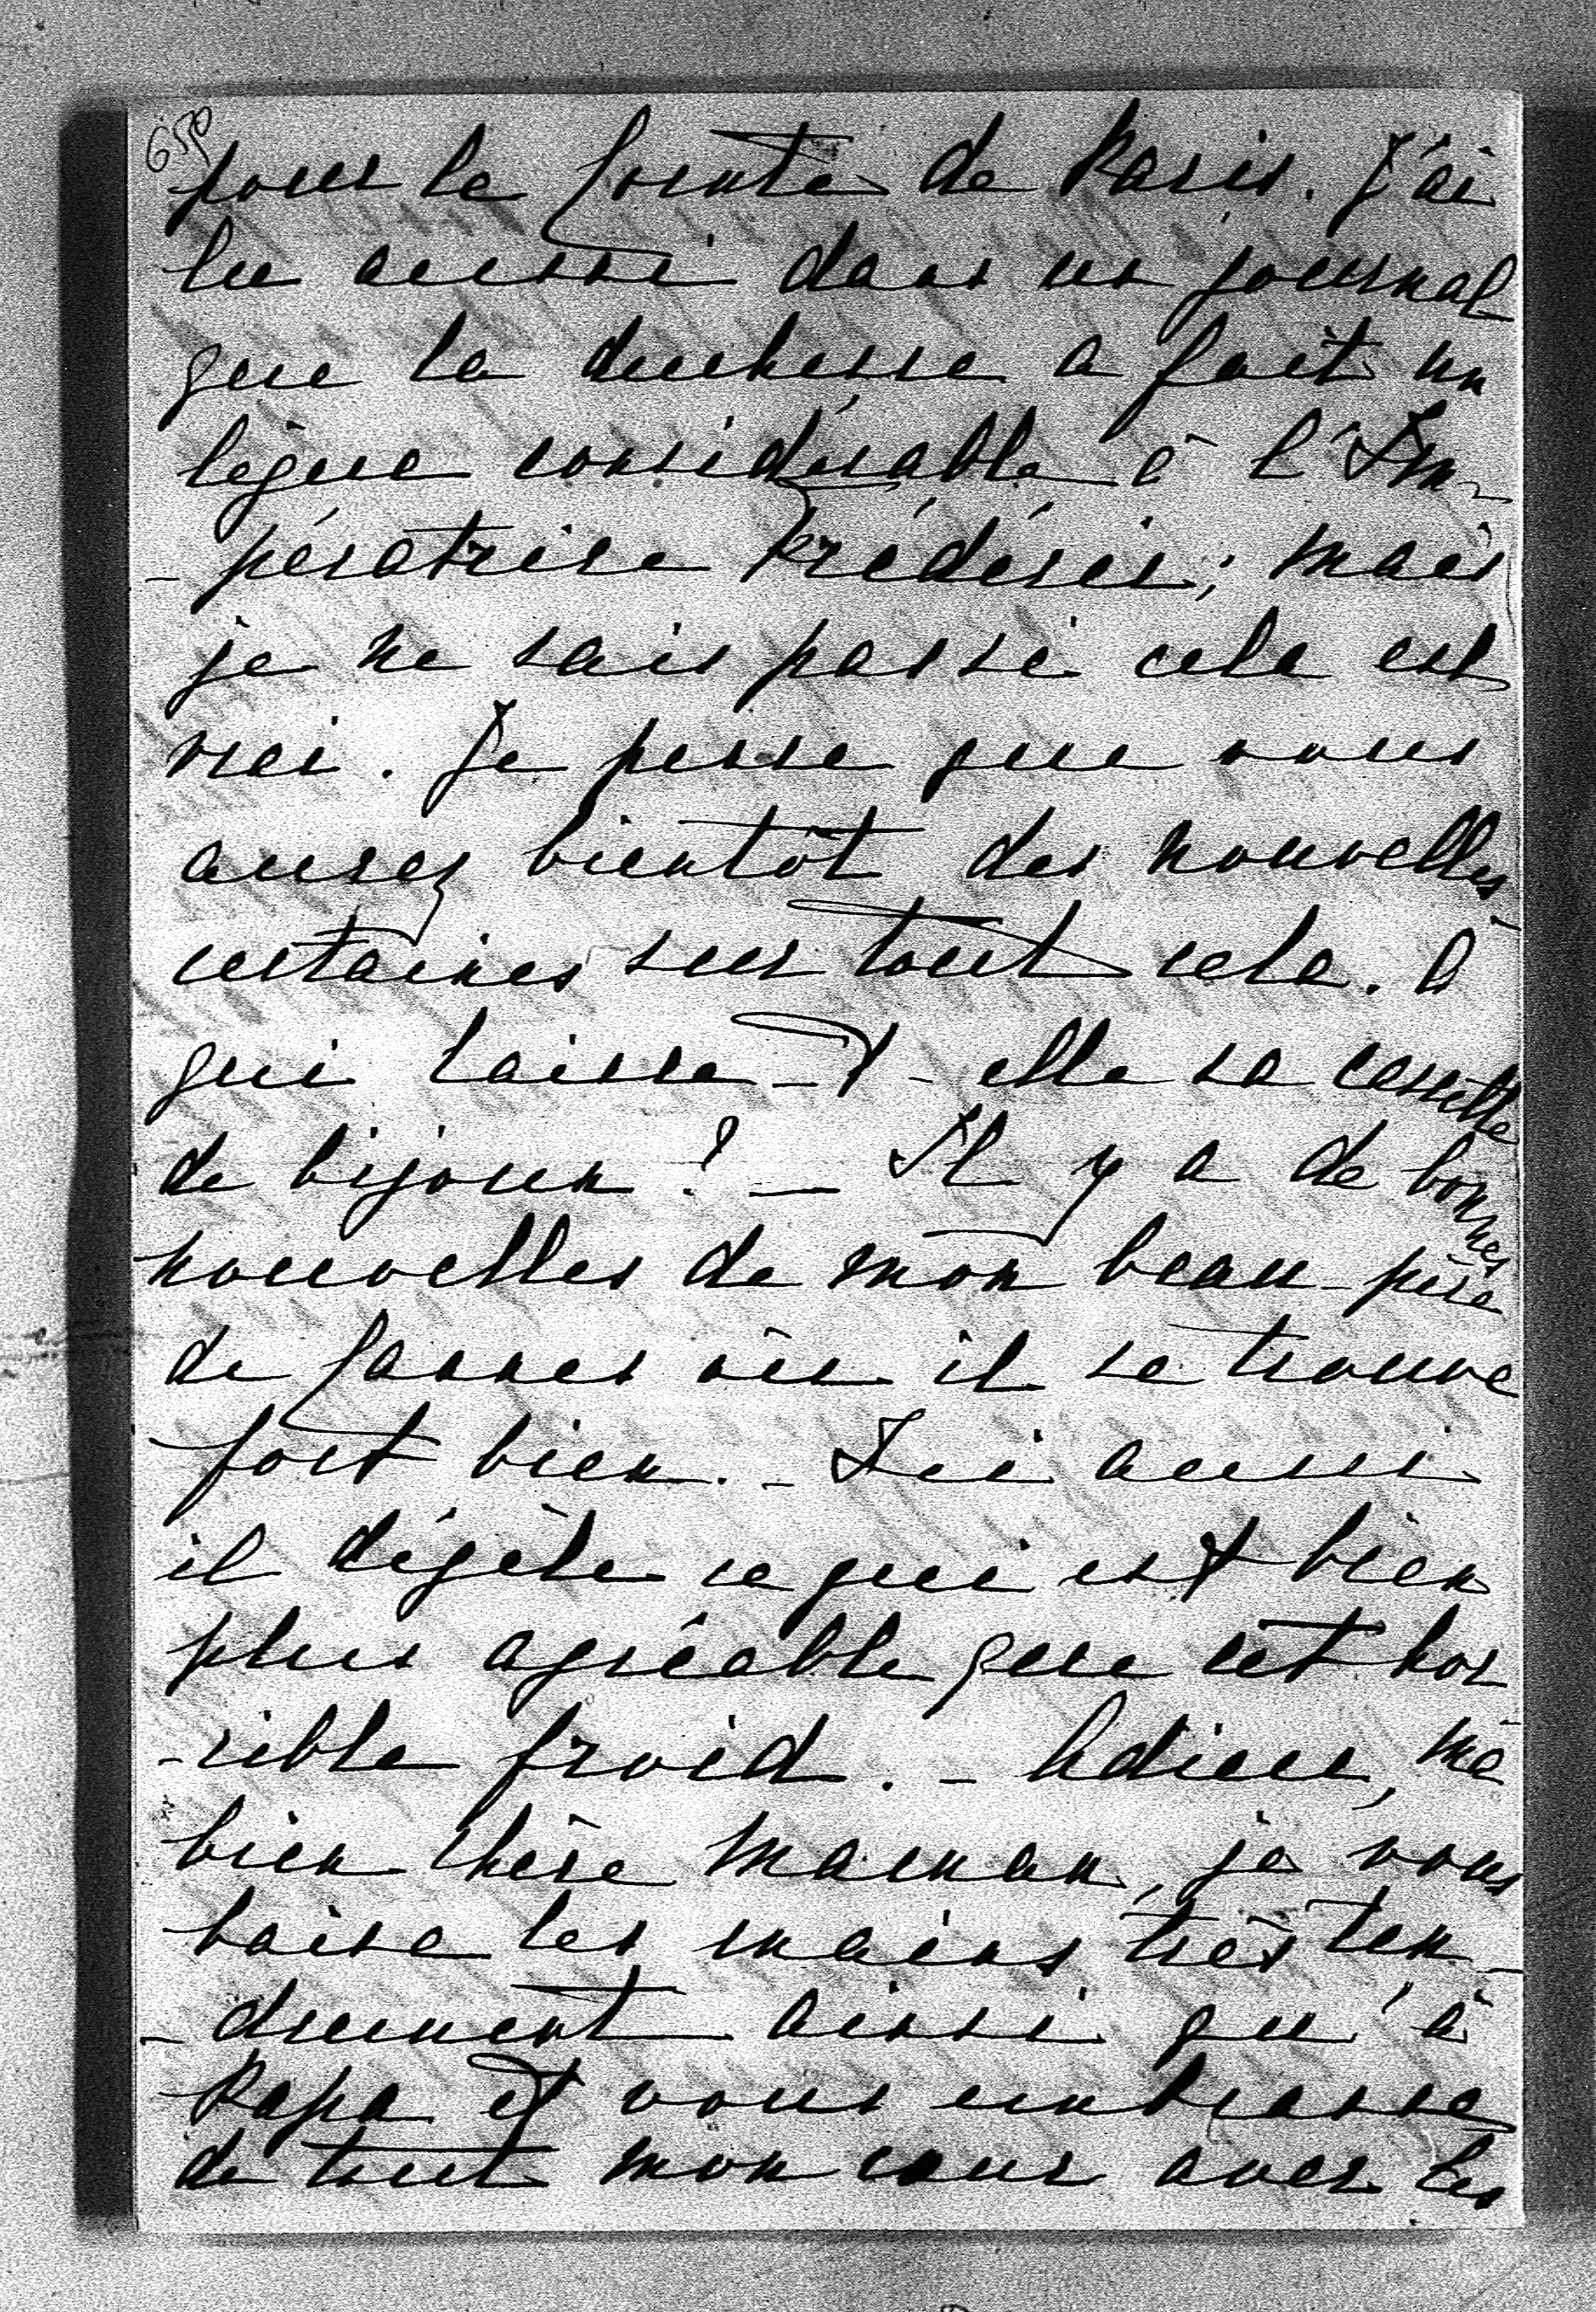 650
pour le Comte de Paris. J'ai
lu aussi dans un journal
que la duchesse a fait un
lègue considérable à l'Im-
-pératrice Frédéric; mais
je ne sais pas si cela est
vrai. Je pense que vous
aurez bientôt des nouvelles
certaines sur tout cela. A
qui laisse-t-elle sa cassette
de bijoux? _ Il y a de bonnes
nouvelles de mon beau-père
de Cannes où il se trouve
fort bien. _ Ici aussi
il dégèle ce qui est bien
plus agréable que cet hor
-rible froid. _ Adieu, ma
bien chère Maman, je vous
baise les mains très ten-
-drement ainsi qu'à
Papa et vous embrasse
de tout mon cœur avec les